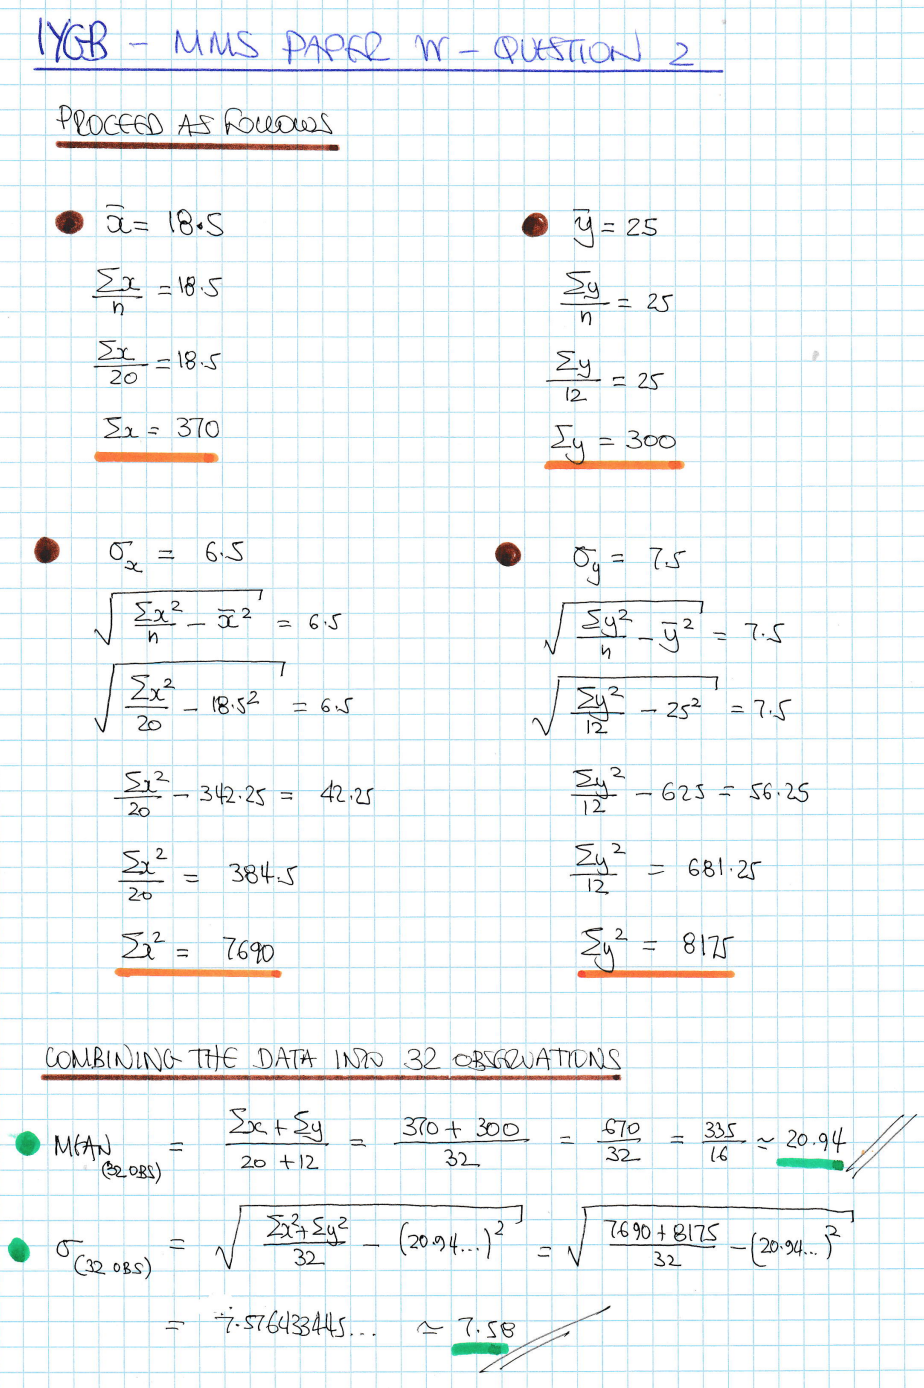 IYGB - MMS PAPER W - QUESTION 2
PROCEED AS FOLLOWS
● x̄ = 18.5
Σx/n = 18.5
Σx/20 = 18.5
Σx = 370
● ȳ = 25
Σy/n = 25
Σy/12 = 25
Σy = 300
● σx = 6.5
√(Σx²/n - x̄²) = 6.5
√(Σx²/20 - 18.5²) = 6.5
Σx²/20 - 342.25 = 42.25
Σx²/20 = 384.5
Σx² = 7690
● σy = 7.5
√(Σy²/n - ȳ²) = 7.5
√(Σy²/12 - 25²) = 7.5
Σy²/12 - 625 = 56.25
Σy²/12 = 681.25
Σy² = 8175
COMBINING THE DATA INTO 32 OBSERVATIONS
● MEAN (32 OBS) = (Σx + Σy)/(20 + 12) = (370 + 300)/32 = 670/32 = 335/16 ≃ 20.94
● σ (32 OBS) = √((Σx² + Σy²)/32 - (20.94...)²) = √((7690 + 8175)/32 - (20.94...)²)
= 7.576433445... ≃ 7.58